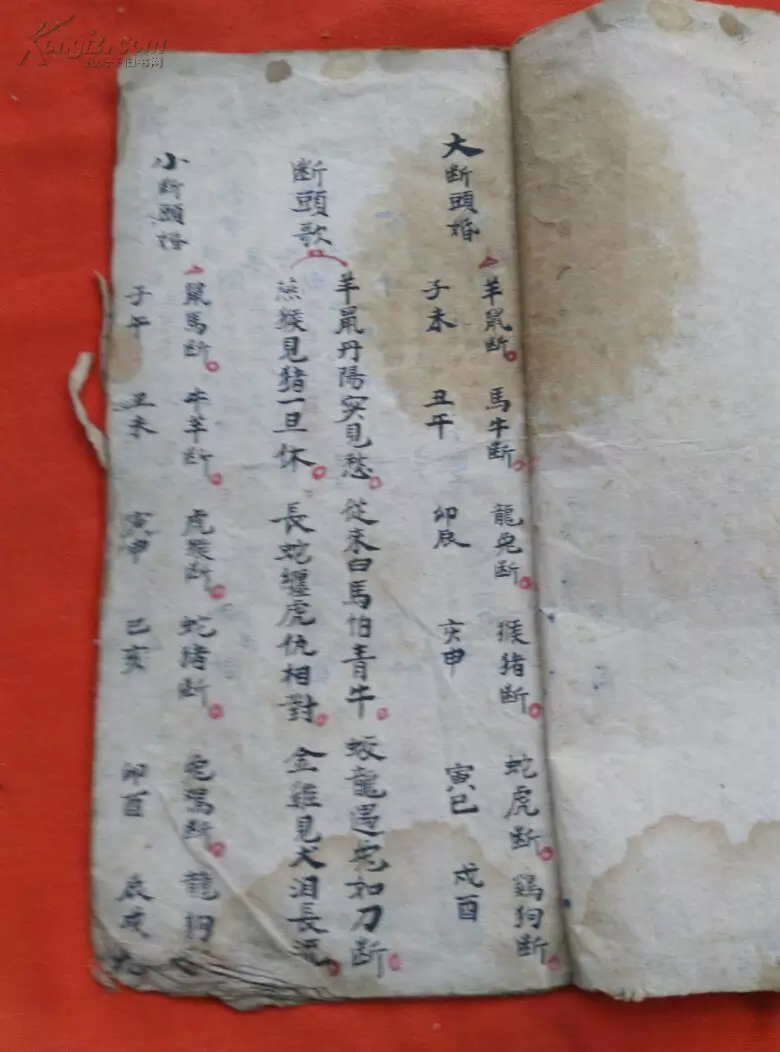 Kongfz.com
大断頭婚
羊鼠断 馬牛断 龍兔断 猴猪断 蛇虎断 鷄狗断
子未 丑午 卯辰 亥申 寅巳 戌酉
断頭歌
羊鼠丹陽实見愁 從来白馬怕青牛 蛟龍遇兔如刀断
猿猴見猪一旦休 長蛇纏虎仇相對 金雞見犬泪長流
小断頭婚
鼠馬断 牛羊断 虎猴断 蛇猪断 兔鷄断 龍狗
子午 丑未 寅申 巳亥 卯酉 辰戌